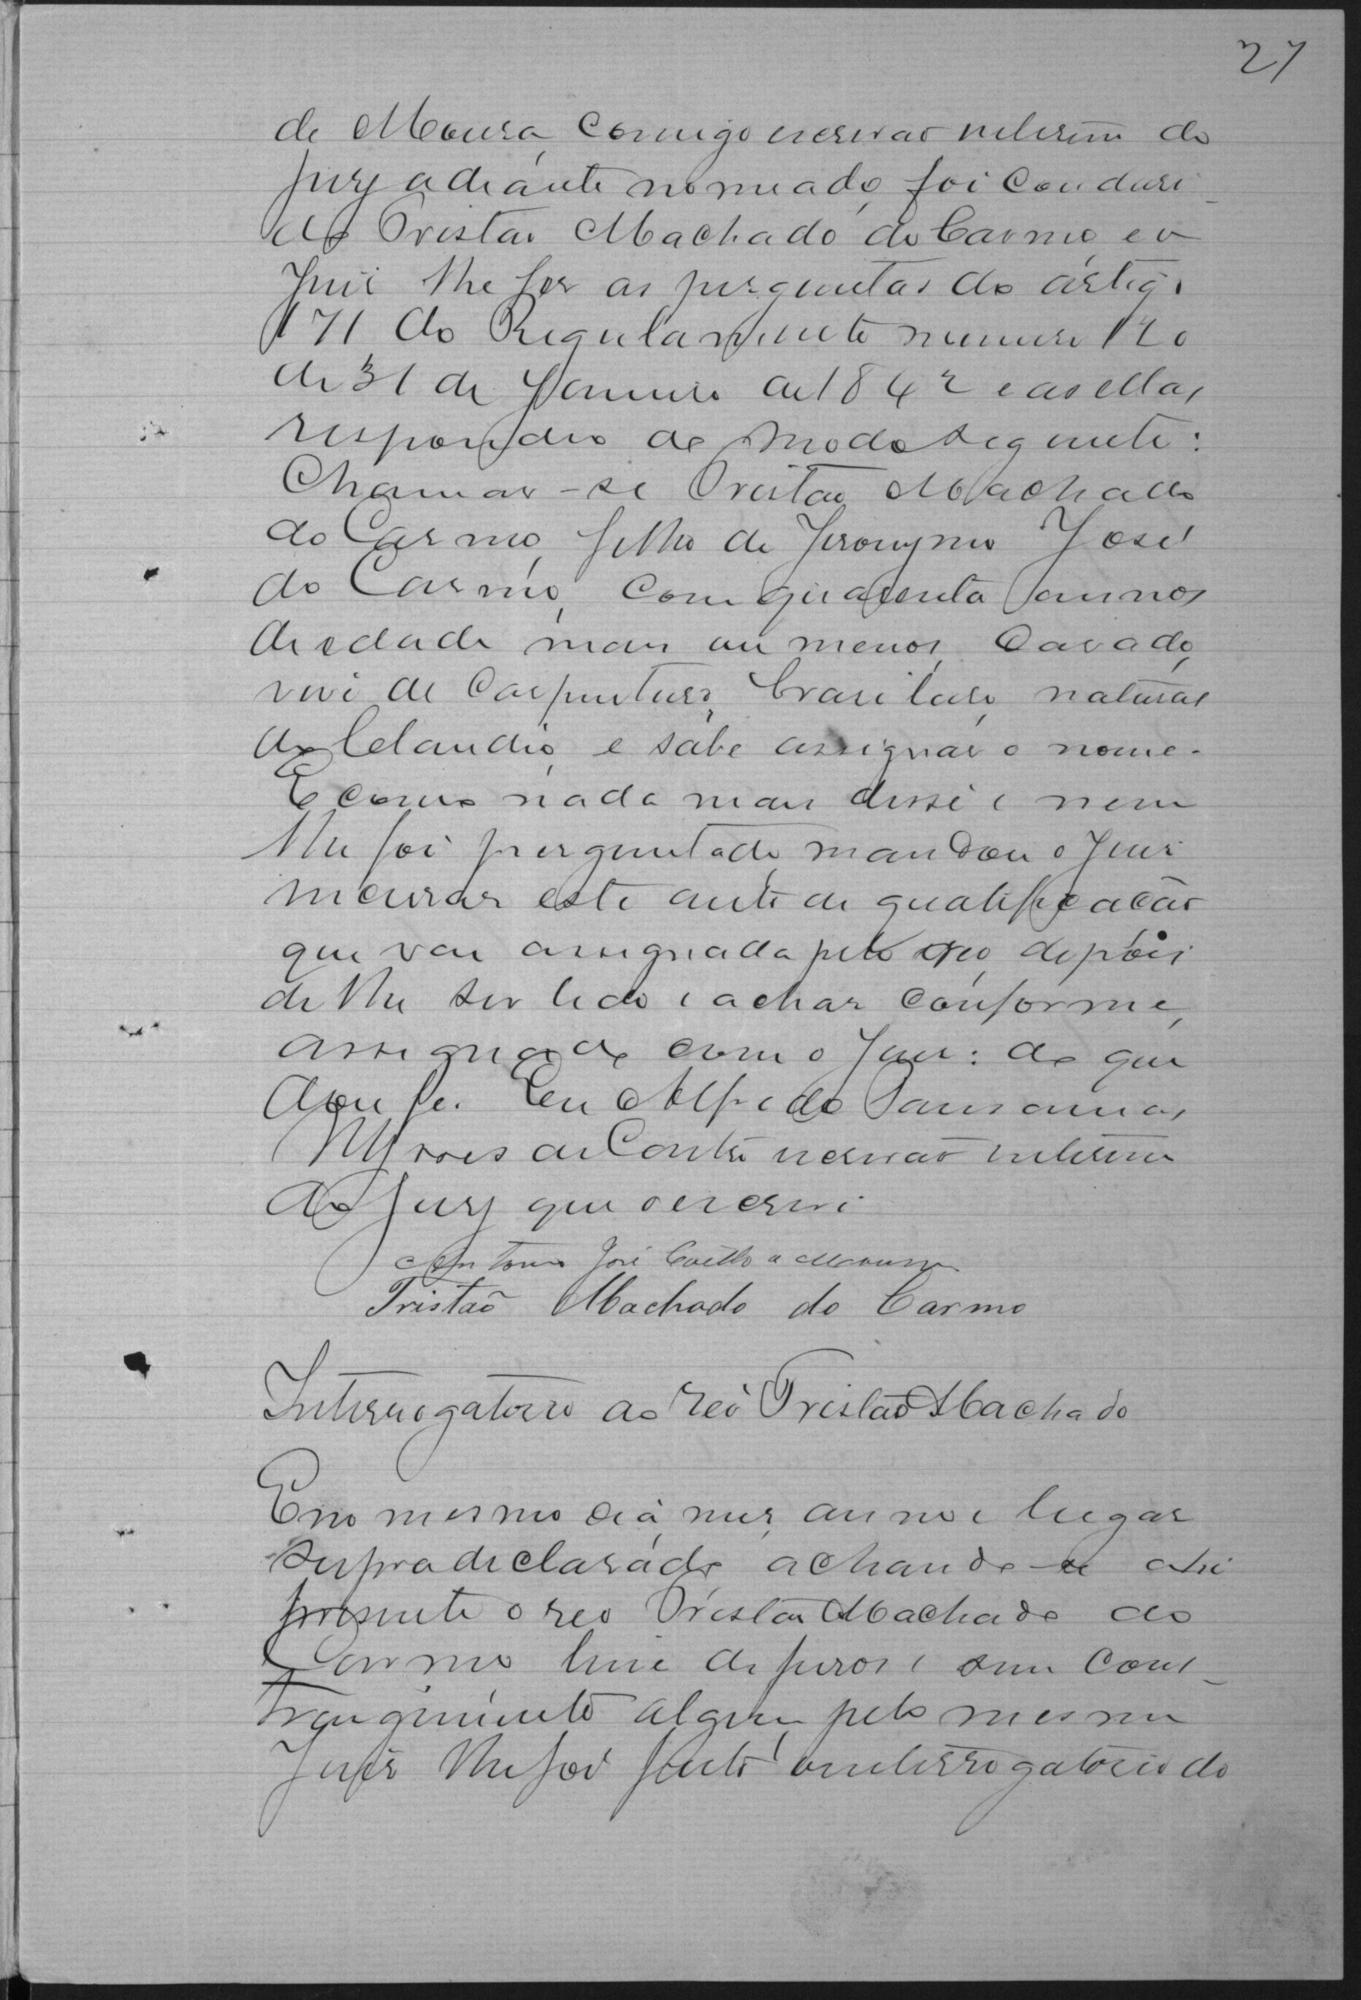 27
de Moura, comigo escrivão interino do
jury adeante nomeado, foi condusi-
do Tristão Machado do Carmo, e o
Juis lhe fes as perguntas do artigo
171 do Regulamento numero 120
de 31 de Janeiro de 1842 e as ellas
respondeo do modo seguinte:
Chamar-se Tristão Machado
do Carmo, filho de Jeronymo José
do Carmo, com quarenta annos
de edade mais ou menos, casado,
vive de carpinteiro, brasileiro, natural
de e sabe assignar o nome.
E como nada mais disse e nem
lhe foi perguntado, mandou o Juis
lavrar este auto de qualificação
que vai assignado pelo reo, depois
de lhe ser lido e achar conforme,
assignado com o Juis: do que
dou fé. Eu Alfredo
escrivão interino
do jury que o escrevi
Antonio José Coelho de Moura
Tristão Machado do Carmo
Interrogatorio ao reo Tristão Machado
E no mesmo dia, mes, anno e lugar
supra declarado achando-se ahi
presente o reo Tristão Machado do
Carmo livre de ferros e sem cons-
trangimento algum, pelo mesmo
Juis lhe foi feito o interrogatorio do